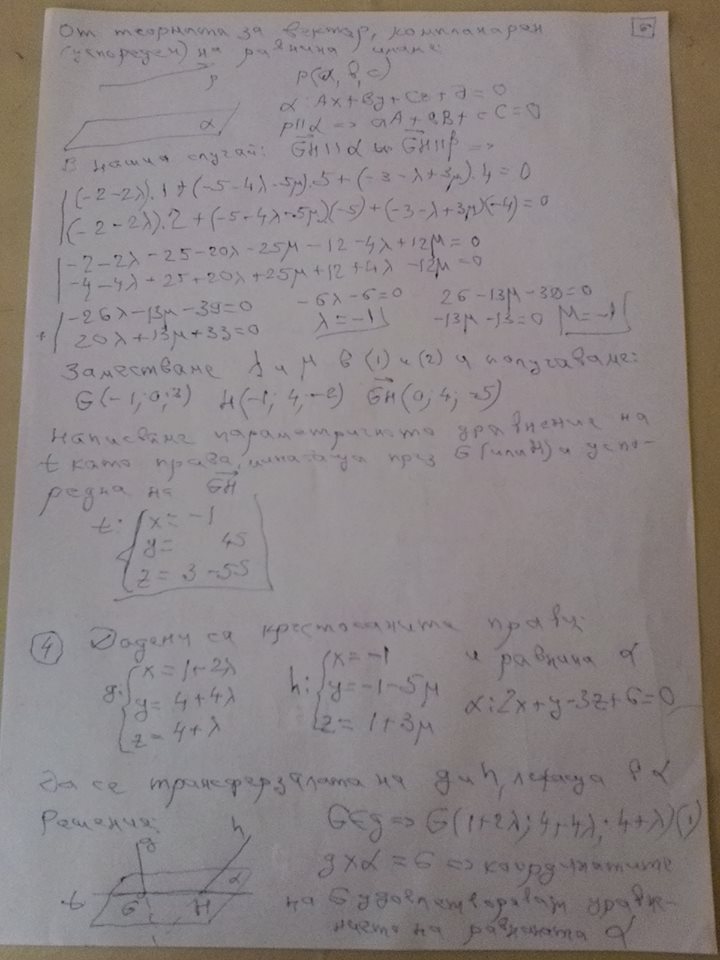 От теорията за вектор, компланарен
(успореден) на равнина имаме:
6
p
p(a, b, c)
α: Ax+By+Cz+D=0
α
p||α => aA+bB+cC=0
В нашия случай: GH||α и GH||β =>
(-2-2λ).1+(-5-4λ-5μ).5+(-3-λ+3μ).4=0
(-2-2λ).2+(-5-4λ-5μ)(-5)+(-3-λ+3μ)(-4)=0
-2-2λ-25-20λ-25μ-12-4λ+12μ=0
-4-4λ+25+20λ+25μ+12+4λ-12μ=0
+ -26λ-13μ-39=0 -6λ-6=0 26-13μ-39=0
20λ+13μ+33=0 λ=-1 -13μ-13=0 μ=-1
Заместваме λ и μ в (1) и (2) и получаваме:
G(-1;0;3) H(-1;4;-2) GH(0;4;-5)
Написваме параметричното уравнение на
t като права, минаваща през G(или H) и успо-
редна на GH
t: x=-1
y= 4s
z=3-5s
4 Дадени са кръстосаните прави:
g: x=1+2λ h: x=-1 и равнина α
y=4+4λ y=-1-5μ α: 2x+y-3z+6=0
z=4+λ z=1+3μ
Да се трансферзалата на g и h, лежаща в α
Решения: G∈g => G(1+2λ; 4+4λ; 4+λ) (1)
g h
g×α=G => координатите
α
t G H
на G удовлетворяват уравне-
нието на равнината α